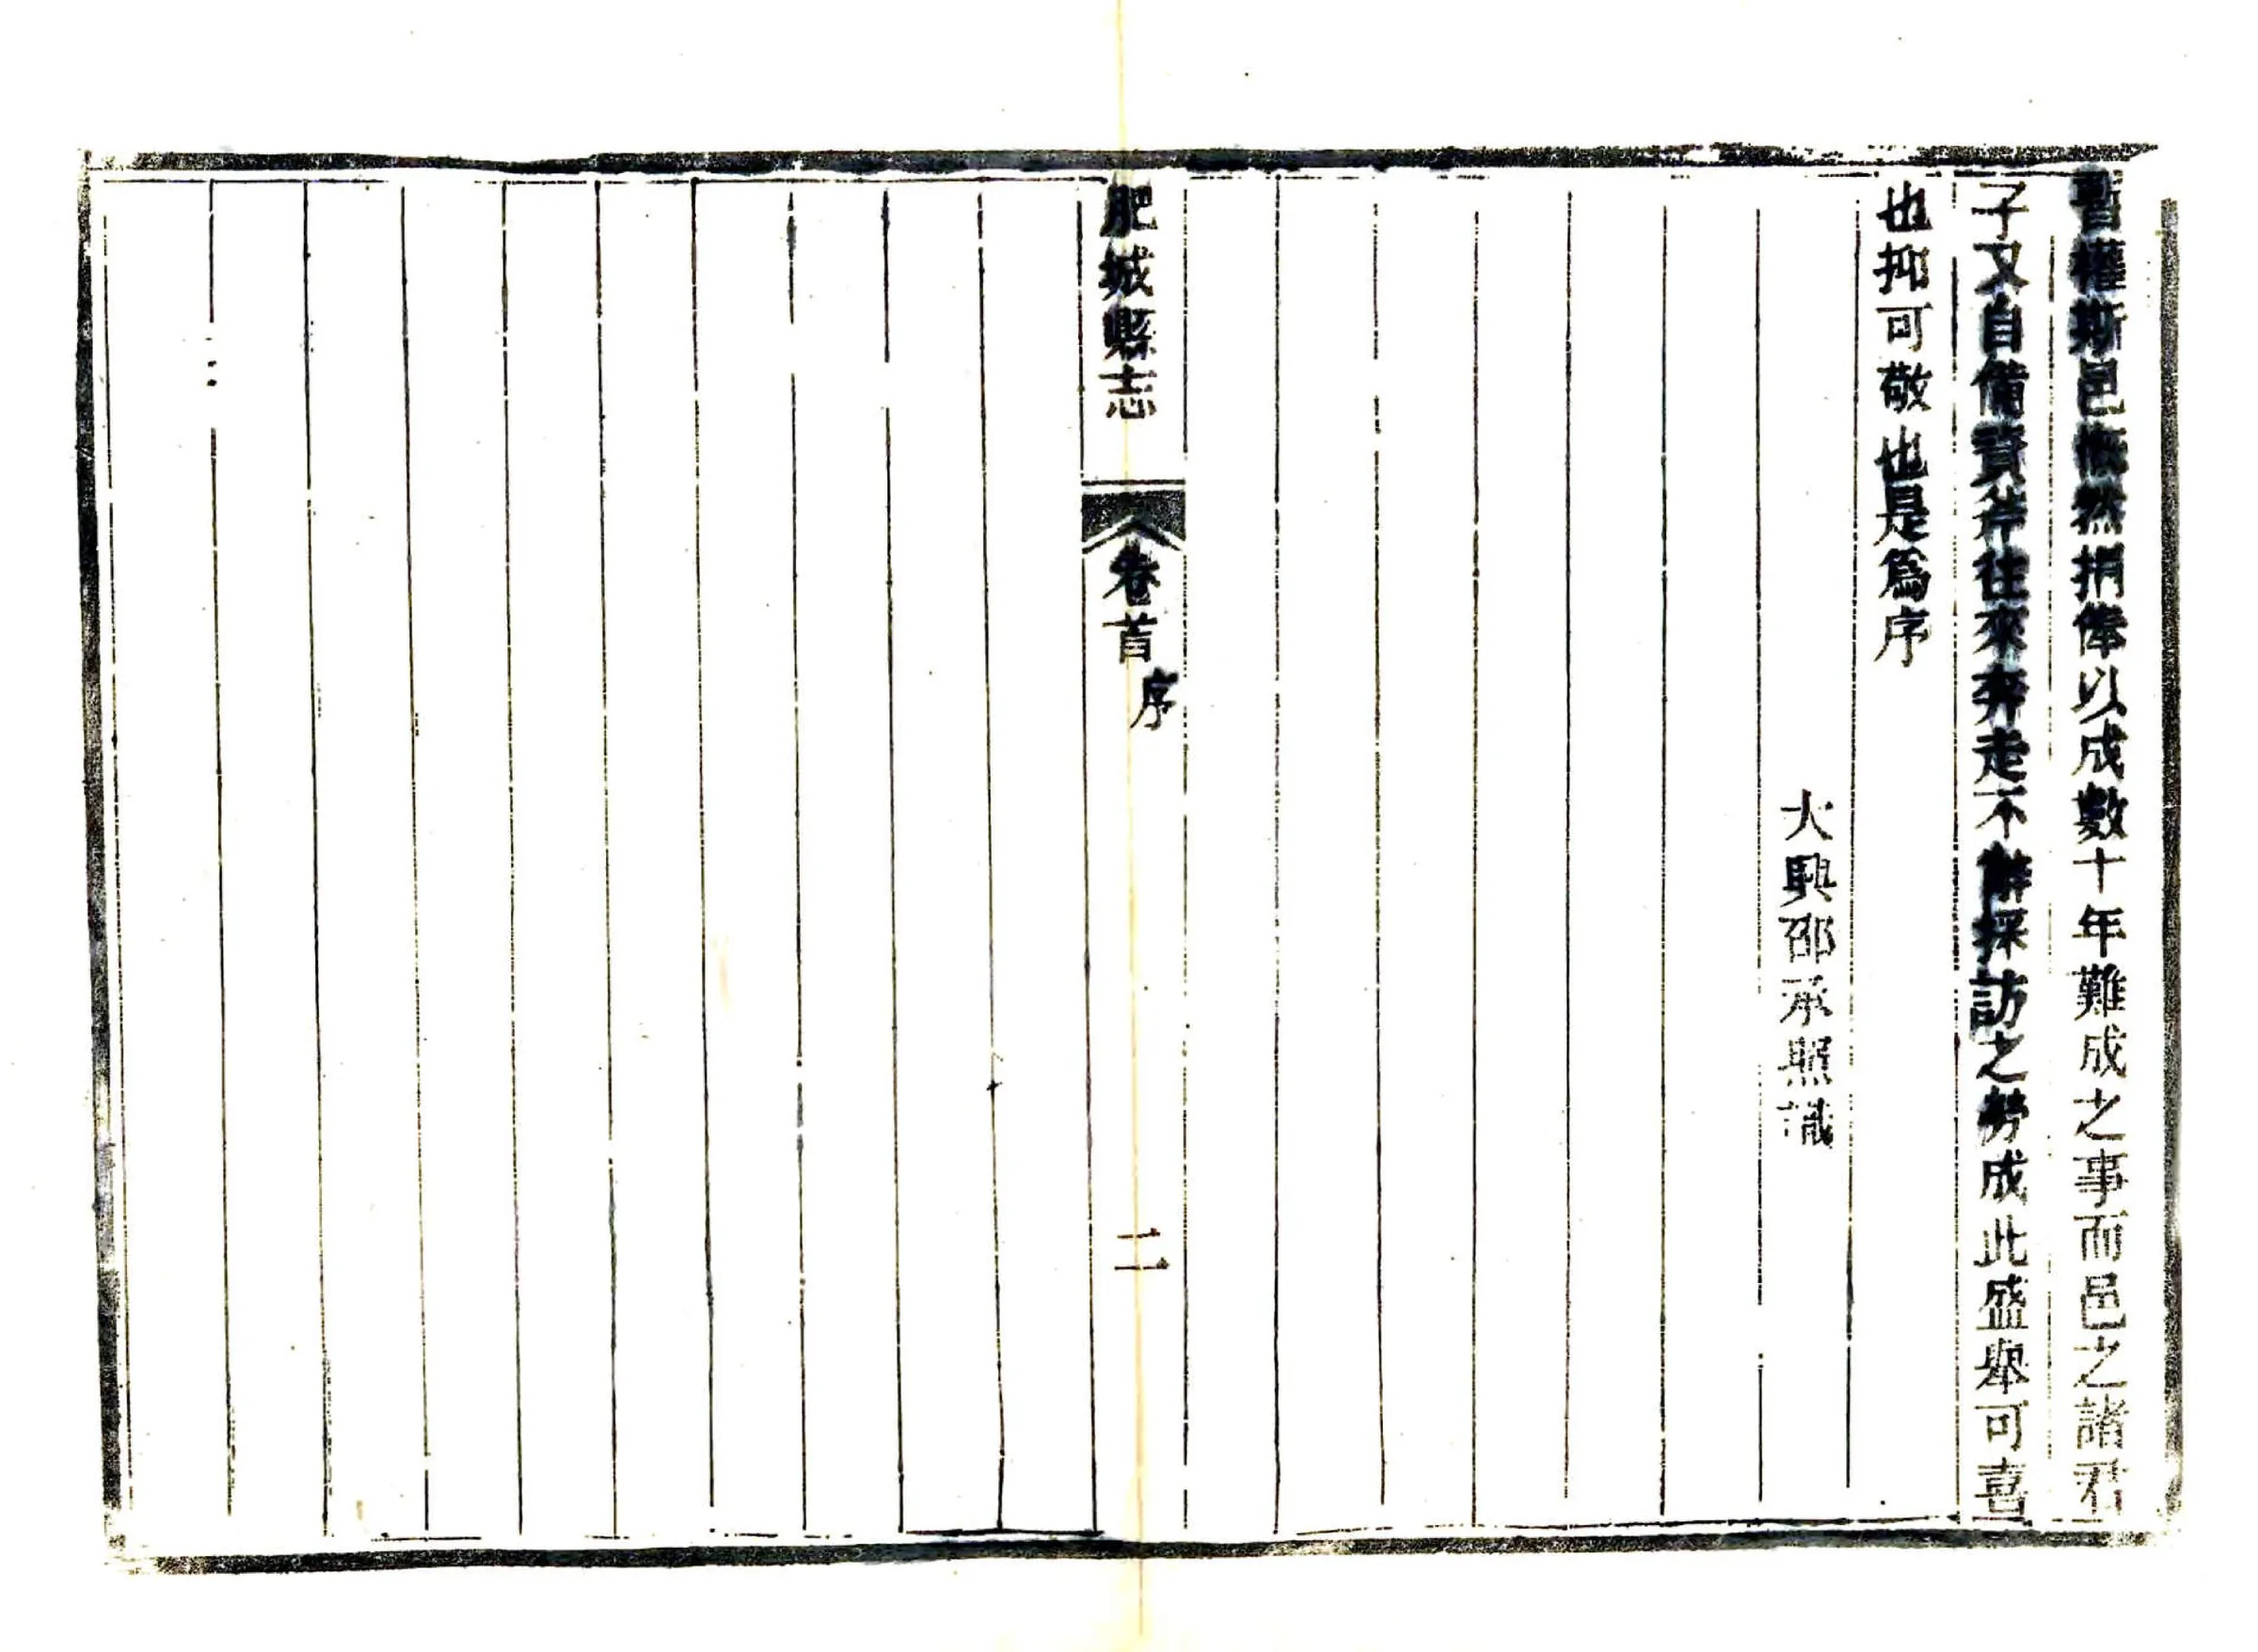 暫權斯邑慨然捐俸以成數十年難成之事而邑之諸君
子又自備資斧往來奔走不辭採訪之勞成此盛舉可喜
也抑可敬也是爲序
大興邵承照識
肥城縣志
卷首
序
二